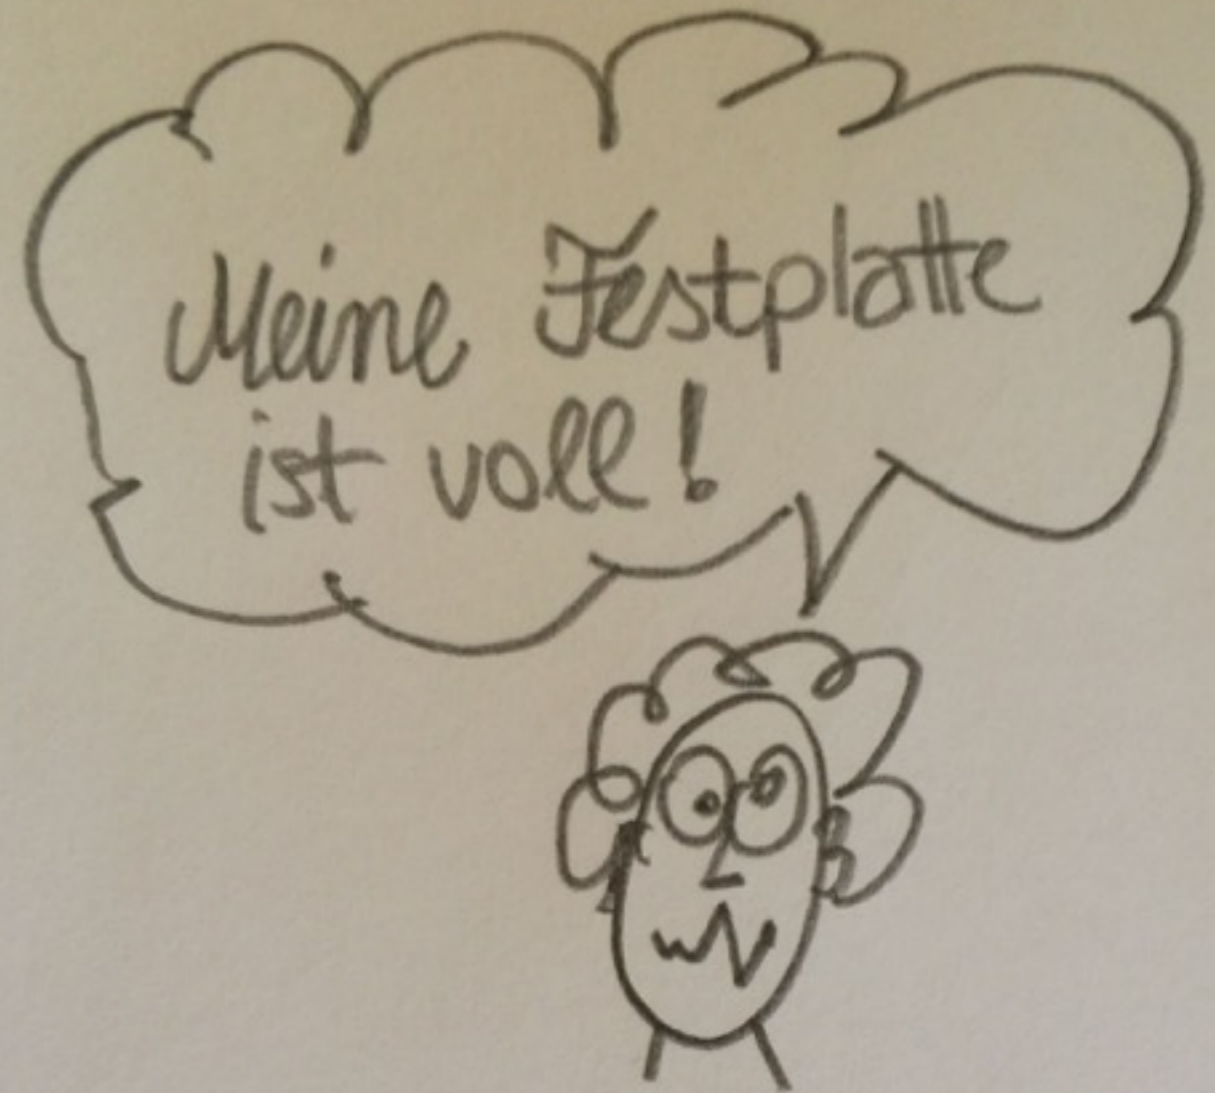 Meine Festplatte
ist voll!